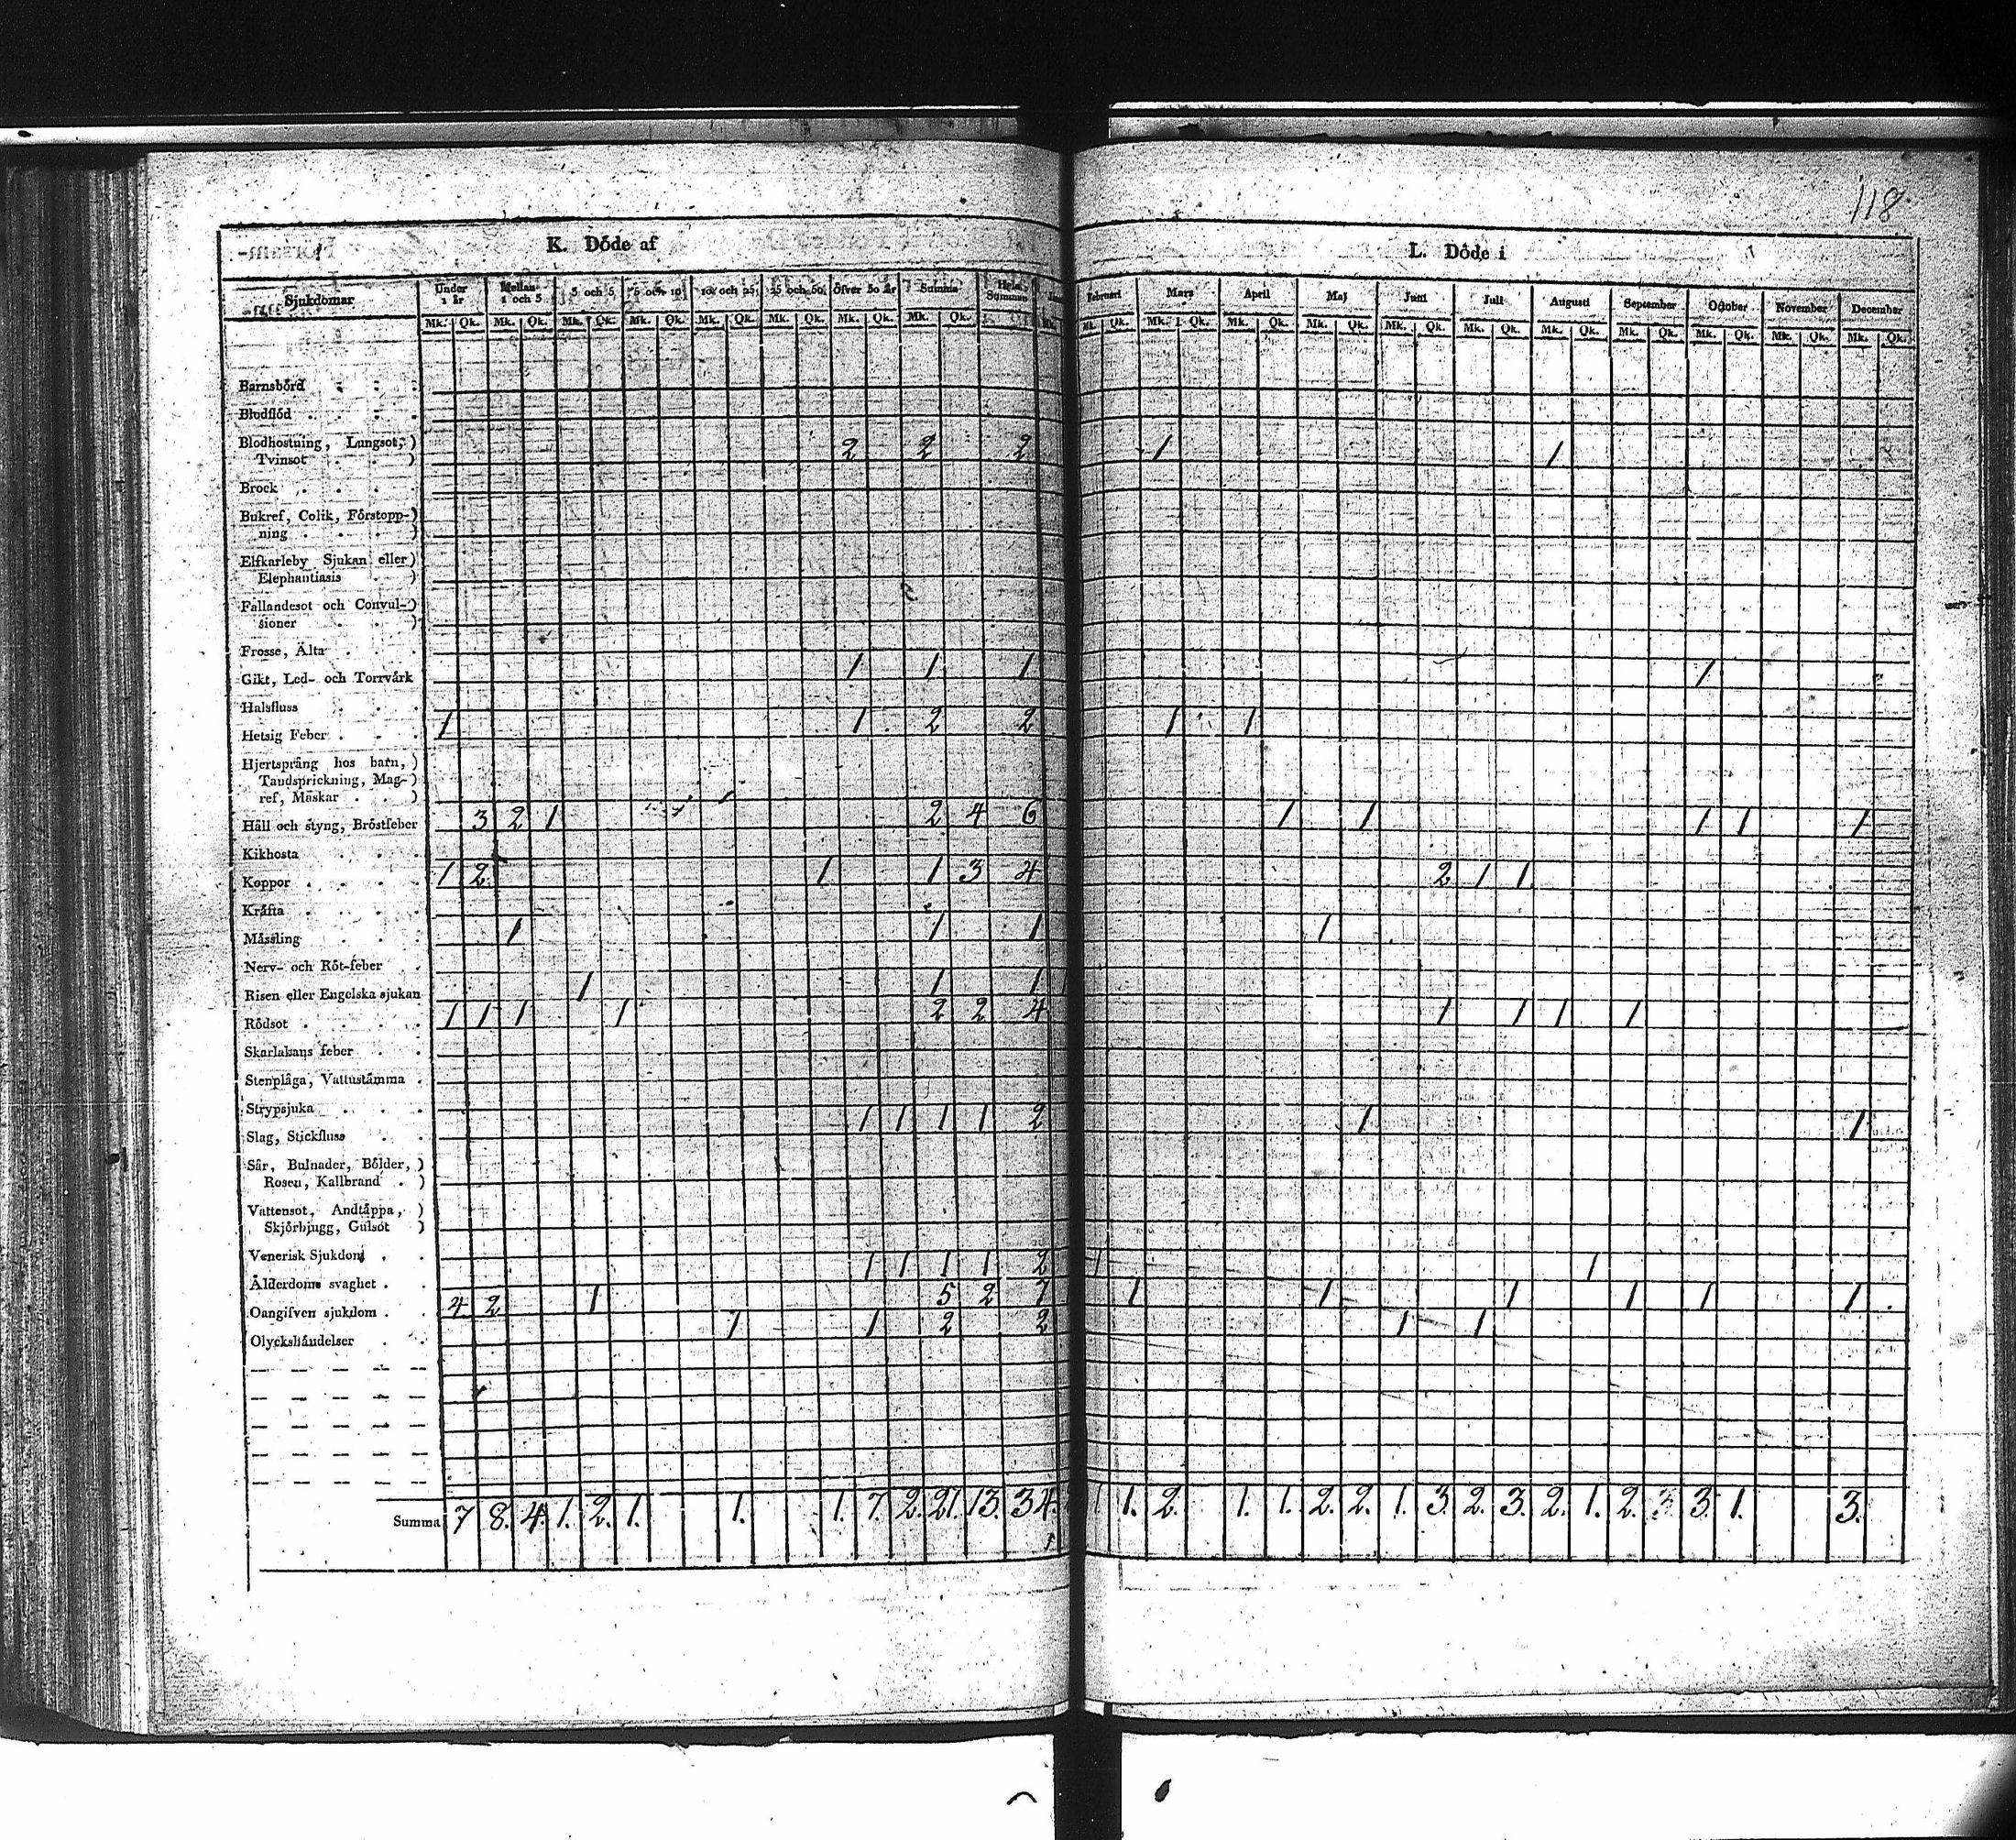 118
K. Döde af
L. Döde i
Sjukdomar Under 1 år Mellan 1 och 3 3 och 5 5 och 10 10 och 25 25 och 50 Öfver 50 år Summa Hela Summan
Februari Mars April Maj Juni Juli Augusti September October November December
Mk. Qk. Mk. Qk. Mk. Qk. Mk. Qk. Mk. Qk. Mk. Qk. Mk. Qk. Mk. Qk. Mk.
Mk. Qk. Mk. Qk. Mk. Qk. Mk. Qk. Mk. Qk. Mk. Qk. Mk. Qk. Mk. Qk. Mk. Qk. Mk. Qk. Mk. Qk.
Barnsbörd
Blodflöd
Blodhostning, Lungsot,
Tvinsot 2 2 2 1 1
Brock
Bukref, Colik, Förstopp-
ning
Elfkarleby Sjukan eller
Elephantiasis
Fallandesot och Convul-
sioner
Frosse, Älta
Gikt, Led- och Torrvärk 1 1 1 1
Halsfluss
Hetsig Feber 1 1 2 2 1 1
Hjertsprång hos barn,
Tandsprickning, Mag-
ref, Maskar
Håll och styng, Bröstfeber 3 2 1 2 4 6 1 1 1 1 1
Kikhosta
Koppor 1 2 1 1 3 4 2 1 1
Kräfta
Mässling 1 1 1 1
Nerv- och Röt-feber
Risen eller Engelska sjukan 1 1 1 1
Rödsot 1 1 1 1 2 2 4 1 1 1 1
Skarlakans feber
Stenplåga, Vattustämma
Strypsjuka
Slag, Stickfluss 1 1 1 1 2 1 1
Sår, Bulnader, Bölder,
Rosen, Kallbrand
Vattensot, Andtäppa,
Skjörbjugg, Gulsot
Venerisk Sjukdom
Ålderdoms svaghet 1 1 1 1 2 1 1
Oangifven sjukdom 4 2 1 5 2 7 1 1 1 1 1 1
Olyckshändelser 1 1 2 2 1 1
Summa 7 8. 4. 1. 2. 1. 1. 1. 7. 2. 21. 13. 34. 1 1. 2. 1. 1. 2. 2. 1. 3. 2. 3. 2. 1. 2. 3. 3. 1. 3.